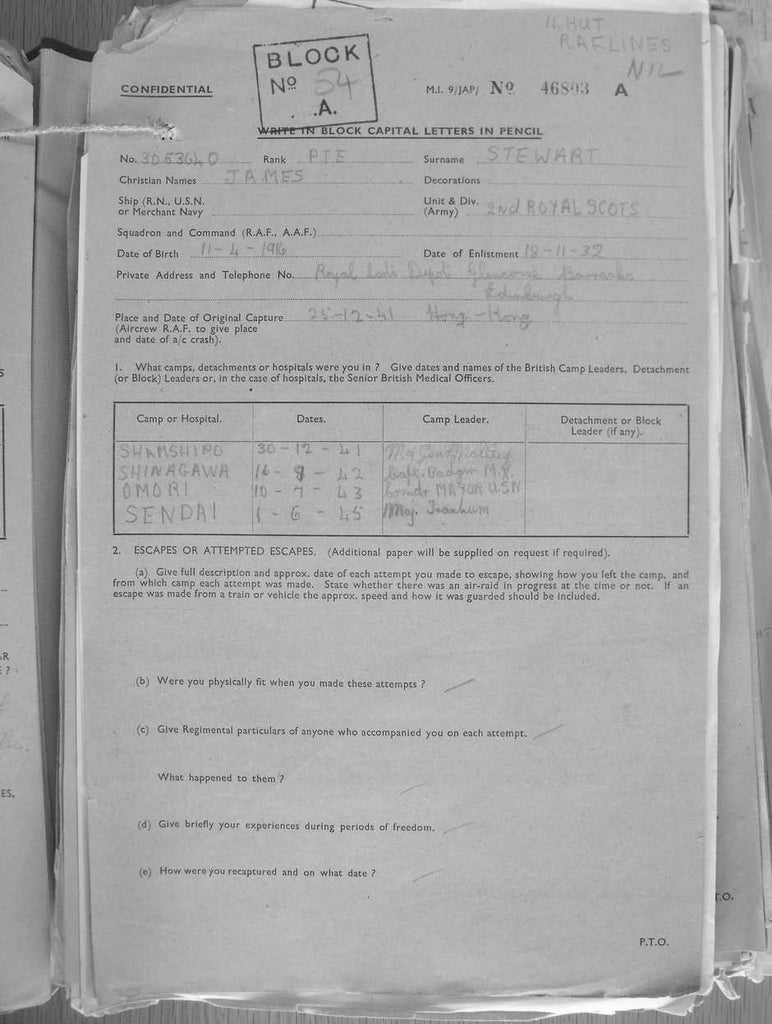 11. HUT
R.A.F. LINES
NIL
BLOCK
Nº 54
A.
CONFIDENTIAL
M.I. 9/JAP/ Nº 46803 A
WRITE IN BLOCK CAPITAL LETTERS IN PENCIL
No. 3053640 Rank PTE Surname STEWART
Christian Names JAMES Decorations
Ship (R.N., U.S.N. or Merchant Navy
Unit & Div. (Army) 2nd ROYAL SCOTS
Squadron and Command (R.A.F., A.A.F.)
Date of Birth 11-4-1916 Date of Enlistment 18-11-32
Private Address and Telephone No. Royal Scots Depot Glencorse Barracks
Edinburgh
Place and Date of Original Capture 25-12-41 Hong-Kong
(Aircrew R.A.F. to give place
and date of a/c crash).
1. What camps, detachments or hospitals were you in ? Give dates and names of the British Camp Leaders, Detachment
(or Block) Leaders or, in the case of hospitals, the Senior British Medical Officers.
Camp or Hospital. Dates. Camp Leader. Detachment or Block
Leader (if any).
SHAMSHIPO 30-12-41 Maj Gen Maltby
SHINAGAWA 16-8-42 Capt.
OMORI 10-7-43 Comdr MAYOR U.S.N
SENDAI 1-6-45 Maj.
2. ESCAPES OR ATTEMPTED ESCAPES. (Additional paper will be supplied on request if required).
(a) Give full description and approx. date of each attempt you made to escape, showing how you left the camp, and
from which camp each attempt was made. State whether there was an air-raid in progress at the time or not. If an
escape was made from a train or vehicle the approx. speed and how it was guarded should be included.
(b) Were you physically fit when you made these attempts ?
(c) Give Regimental particulars of anyone who accompanied you on each attempt.
What happened to them ?
(d) Give briefly your experiences during periods of freedom.
(e) How were you recaptured and on what date ?
P.T.O.
T.O.
ES.